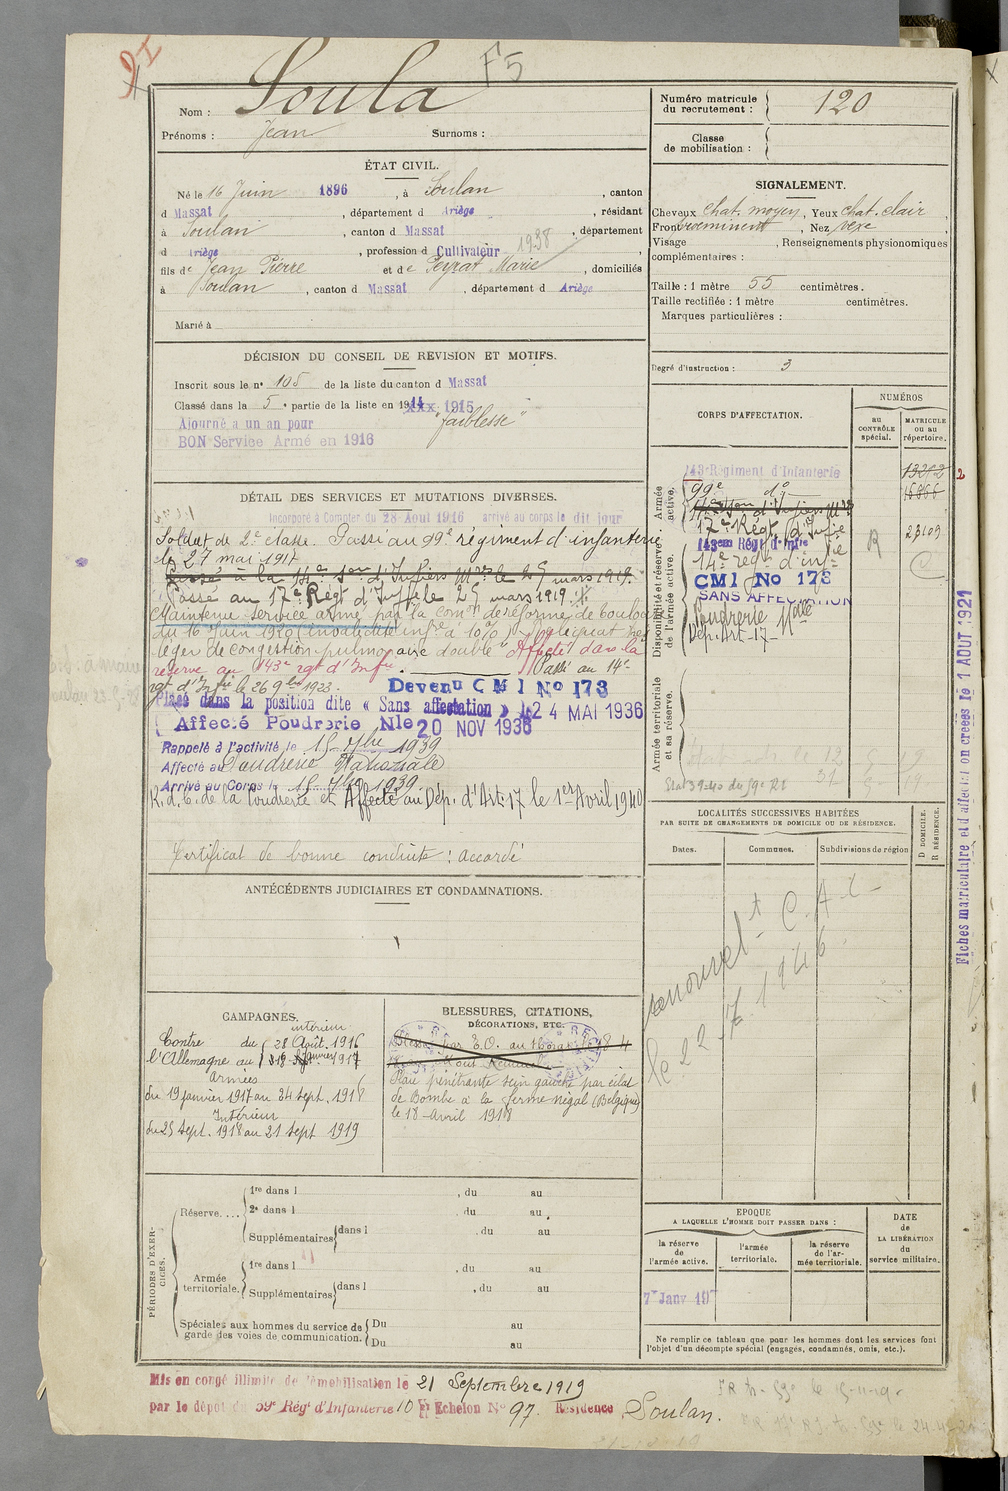 91
F5
Nom : Soula
Prénoms : Jean Surnoms :
Numéro matricule du recrutement : 120
Classe de mobilisation :
ÉTAT CIVIL.
Né le 16 Juin 1896, à Soulan, canton
d Massat, département d Ariège, résidant
à Soulan, canton d Massat, département
d Ariège, profession d Cultivateur 1938,
fils de Jean Pierre et de Peyrat Marie, domiciliés
à Soulan, canton d Massat, département d Ariège
Marié à
SIGNALEMENT.
Cheveux chat. moyen, Yeux chat. clair,
Front proéminent, Nez vexe,
Visage , Renseignements physionomiques
complémentaires :
Taille : 1 mètre 55 centimètres.
Taille rectifiée : 1 mètre centimètres.
Marques particulières :
Degré d'instruction : 3
DÉCISION DU CONSEIL DE REVISION ET MOTIFS.
Inscrit sous le n° 105 de la liste du canton d Massat
Classé dans la 5e partie de la liste en 1914 xxx 1915
Ajourné a un an pour "faiblesse"
BON Service Armé en 1916
DÉTAIL DES SERVICES ET MUTATIONS DIVERSES.
Incorporé à Compter du 28 Aout 1916 arrivé au corps le dit jour
Soldat de 2e classe. Passé au 99e régiment d'infanterie
le 27 mai 1917
Passé à la 14e son d'Infiers Mres le 25 mars 1919.
Passé au 17e Régt d'Inffie le 25 mars 1919.
Maintenu service armé par la comon de réforme de
du 16 Juin 1920 (invalidité infre à 10%)
léger de congestion pulmonaire double Affecté dans la
réserve au 143e rgt d'Infie. Passé au 14e
rgt d'Infie le 26 9bre 1923. Devenu CMI No 173
Placé dans la position dite « Sans affectation » le 24 MAI 1936
Affecté Poudrerie Nle 20 NOV 1936
Rappelé à l'activité le 15 7bre 1939
Affecté au Poudrerie Nationale
Arrivé au Corps le 15 7bre 1939
R.d.C. de la Poudrerie et Affecté au Dép. d'Art. 17 le 1er Avril 1940
Certificat de bonne conduite : accordé
CORPS D'AFFECTATION.
NUMÉROS
au CONTRÔLE spécial.
MATRICULE ou au répertoire.
Armée active.
143e Régiment d'Infanterie 13252
99e do 16866
14e Son d'Infiers Mres
17e Régt d'Infie 23109
Disponibilité et réserve de l'armée active.
143eme Régt d'Infie R
14e régt d'infie
CMI No 173
SANS AFFECTATION
Poudrerie Nale
Dép. Art. 17
Armée territoriale et sa réserve.
Fiches matriculaire et d'affectation créées le 1 AOUT 1921
ANTÉCÉDENTS JUDICIAIRES ET CONDAMNATIONS.
LOCALITÉS SUCCESSIVES HABITÉES
PAR SUITE DE CHANGEMENTS DE DOMICILE OU DE RÉSIDENCE.
Dates.
Communes.
Subdivisions de région
D DOMICILE.
R RÉSIDENCE.
le 22-7-1946
CAMPAGNES.
intérieur
Contre du 28 Août 1916
l'Allemagne au 18 Janvier 1917
Armées
du 19 janvier 1917 au 24 sept. 1918
Intérieur
du 25 Sept. 1918 au 21 Sept 1919
BLESSURES, CITATIONS,
DÉCORATIONS, ETC.
Plaie pénétrante sein gauche par éclat
de Bombe à la ferme négal (Belgique)
le 18 Avril 1918
PÉRIODES D'EXERCICES.
Réserve....
1re dans l , du au
2e dans l , du au
Supplémentaires dans l , du au
Armée territoriale.
1re dans l , du au
Supplémentaires dans l , du au
Spéciales aux hommes du service de garde des voies de communication.
Du au
Du au
EPOQUE
A LAQUELLE L'HOMME DOIT PASSER DANS :
la réserve de l'armée active.
l'armée territoriale.
la réserve de l'armée territoriale.
DATE de LA LIBÉRATION du service militaire.
Ne remplir ce tableau que pour les hommes dont les services font
l'objet d'un décompte spécial (engagés, condamnés, omis, etc.).
Mis en congé illimité de démobilisation le 21 Septembre 1919
par le dépôt du 59e Régt d'Infanterie 10 Echelon No 97. Résidence Soulan.